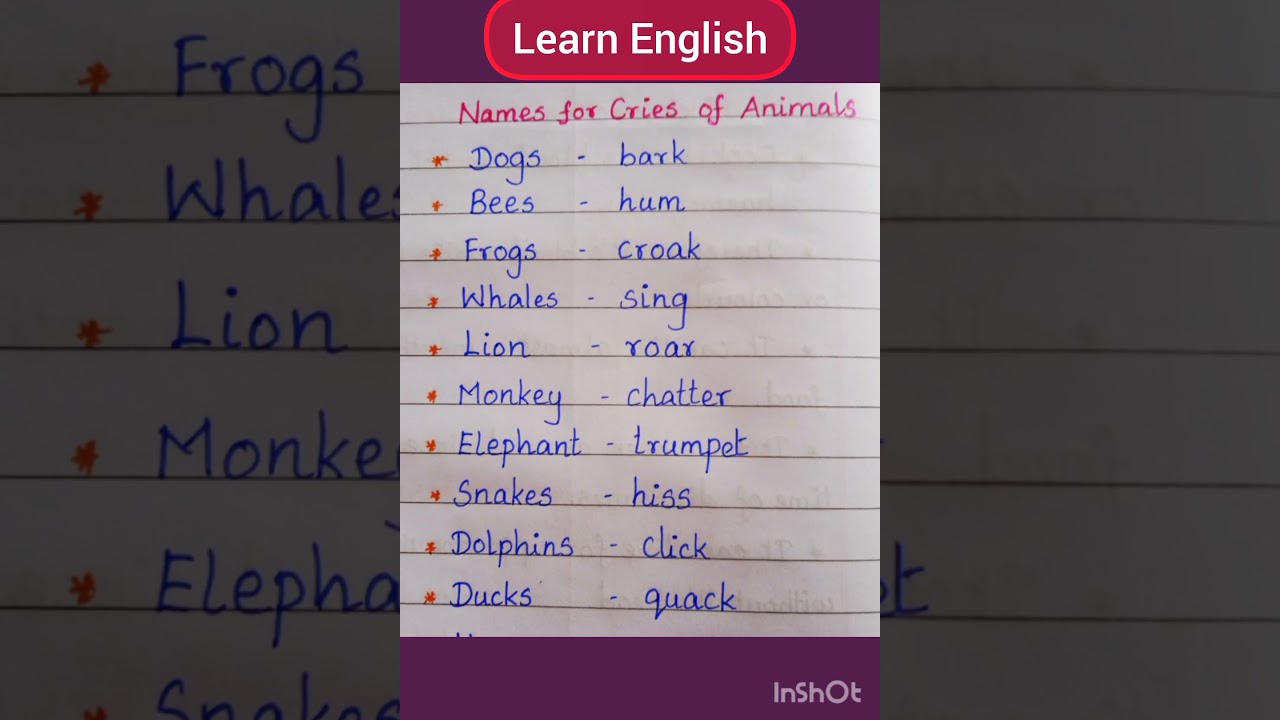 Learn English
Names for Cries of Animals
* Dogs - bark
* Bees - hum
* Frogs - croak
* Whales - sing
* Lion - roar
* Monkey - chatter
* Elephant - trumpet
* Snakes - hiss
* Dolphins - click
* Ducks - quack
InShOt
* Frogs
* Whales
* Lion
* Monke
* Elepha
* Snakes